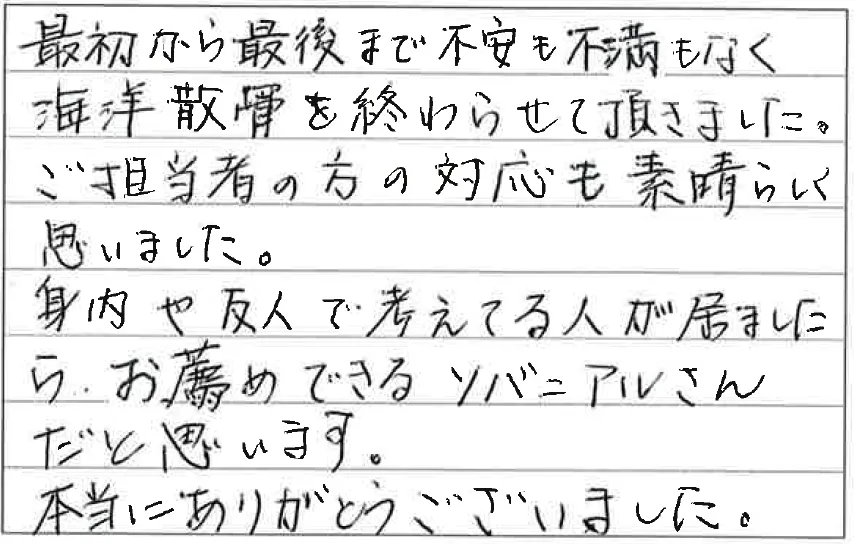 最初から最後まで不安も不満もなく
海洋散骨を終わらせて頂きました。
ご担当者の方の対応も素晴らしく
思いました。
身内や友人で考えてる人が居ました
ら、お薦めできるソバニアルさん
だと思います。
本当にありがとうございました。